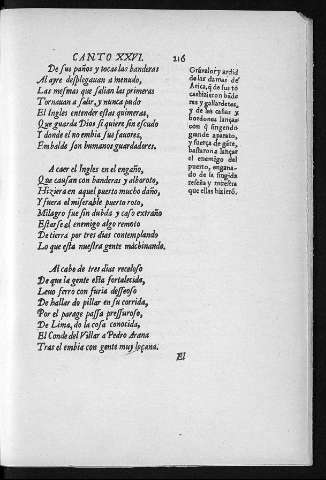 CANTO XXVI. 216
De sus paños y tocas las banderas
Al ayre desplegauan a menudo,
Las mesmas que salian las primeras
Tornauan a salir, y nunca pudo
El Ingles entender estas quimeras,
Que guarda Dios si quiere sin escudo
Y donde el no embia sus fauores,
Embalde son humanos guardadores.
A caer el Ingles en el engaño,
Que causan con banderas y alboroto,
Hiziera en aquel puerto mucho daño,
Y fuera el miserable puerto roto,
Milagro fue sin dubda y caso extraño
Estarse al enemigo algo remoto
De tierra por tres dias contemplando
Lo que esta nuestra gente machinando.
Al cabo de tres dias receloso
De que la gente esta fortalecida,
Leuo ferro con furia desseoso
De hallar do pillar en su corrida,
Por el parage passa pressuroso,
De Lima, do la cosa conocida,
El Conde del Villar a Pedro Arana
Tras el embia con gente muy loçana.
El
y ardid
de las damas de
Arica, q̃ de sus to
cas hizieron bãde
ras y gallardetes,
y de las cañas y
bordones lanças
con q̃ fingendo
grande aparato,
y fuerça de gẽte,
bastaron a lançar
el enemigo del
puerto, engaña-
do de la fingida
reseña y muestra
que ellas hiziero.